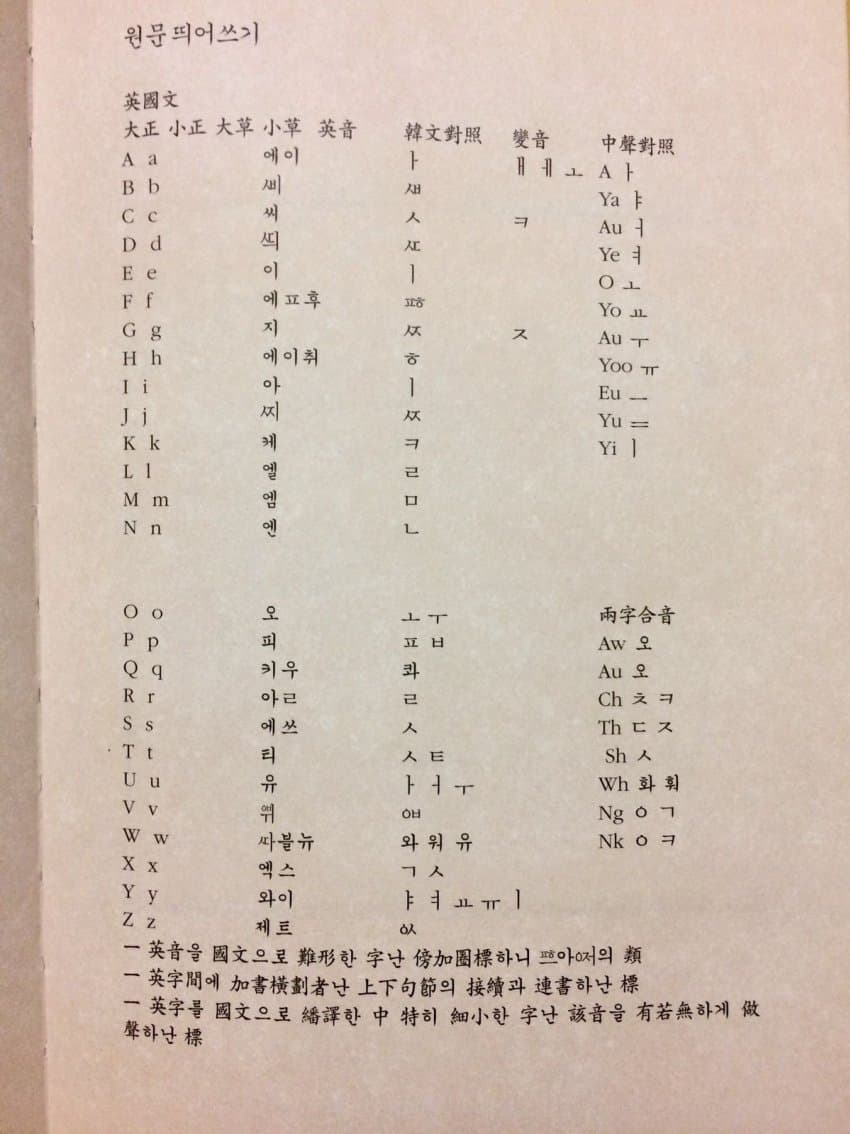 원문띄어쓰기
英國文
大正 小正 大草 小草 英音 韓文對照 變音 中聲對照
A a 에이 ㅏ ㅐ ㅔ ㅗ A ㅏ
B b ᄲᅵ ㅽ Ya ㅑ
C c 씨 ㅅ ㅋ Au ㅓ
D d ᄯᅴ ㅼ Ye ㅕ
E e 이 ㅣ O ㅗ
F f 에ㅍ후 ꥴ Yo ㅛ
G g 지 ㅾ ㅈ Au ㅜ
H h 에이취 ㅎ Yoo ㅠ
I i 아 ㅣ Eu ㅡ
J j ᄶᅵ ㅾ Yu ᆖ
K k 케 ㅋ Yi ㅣ
L l 엘 ㄹ
M m 엠 ㅁ
N n 엔 ㄴ
O o 오 ㅗ ㅜ 兩字合音
P p 피 ㅍ ㅂ Aw 오
Q q 키우 콰 Au 오
R r 아ㄹ ㄹ Ch ㅊ ㅋ
S s 에쓰 ㅅ Th ㄷ ㅈ
T t 티 ㅅ ㅌ Sh ㅅ
U u 유 ㅏ ㅓ ㅜ Wh 화 훠
V v ᅄᅱ ᅄ Ng ㆁ ㄱ
W w ᄯᅡ블뉴 와 워 유 Nk ㆁ ㅋ
X x 엑스 ㄱ ㅅ
Y y 와이 ㅑ ㅕ ㅛ ㅠ ㅣ
Z z 제트 ᅅ
一 英音을 國文으로 難形한 字난 傍加圈標하니 ꥴᅳ아ᅈᅥ의 類
一 英字間에 加書橫劃者난 上下句節의 接續과 連書하난 標
一 英字를 國文으로 繙譯한 中 特히 細小한 字난 該音을 有若無하게 做
聲하난 標